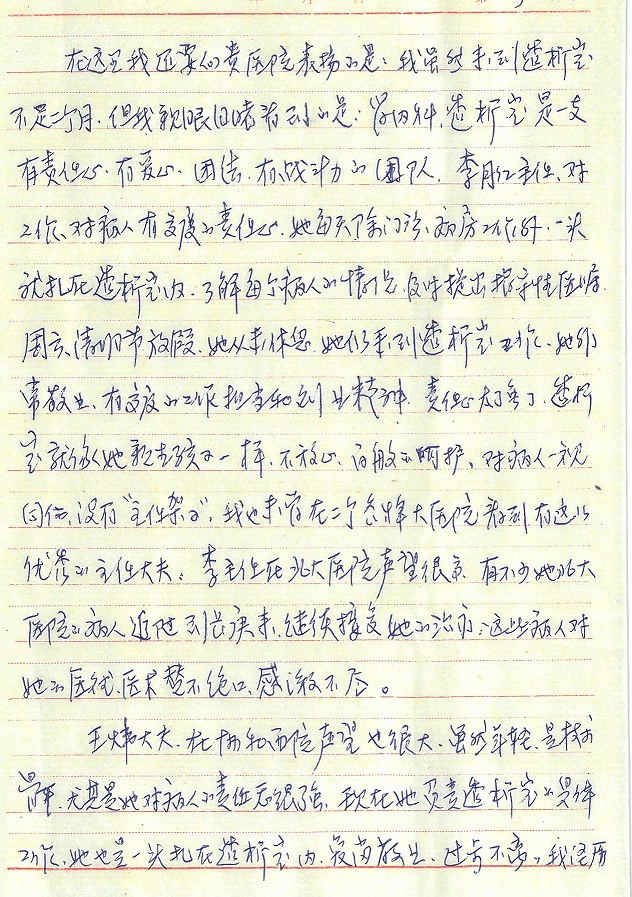 在这里我还要向贵医院表扬的是：我虽然来到透析室
不足二个月，但我亲眼目睹看到的是：肾内科，透析室是一支
有责任心、有爱心、团结、有战斗力的团队。李月红主任，对
工作、对病人有高度的责任心，她每天除门诊、病房工作外，一头
就扎在透析室内，了解每个病人的情况，及时提出指导性医嘱。
周六、清明节放假，她从未休息，她仍来到透析室工作，她非
常敬业，有高度的工作担当和创业精神，责任心太重了，透析
室就像她亲生孩子一样，不放心，百般的呵护，对病人一视
同仁，没有“主任架子”，我也未曾在二个条件大医院看到有这么
优秀的主任大夫。李主任在北大医院声望很高，有不少她北大
医院的病人追随到长庚来，继续接受她的治疗，这些病人对
她的医德、医术赞不绝口，感激不尽。
王炜大夫，在协和西院声望也很大，虽然年轻，是技术
骨干，尤其是她对病人的责任感很强，现在她负责透析室的具体
工作，她也是一头扎在透析室内，爱岗敬业，过号不离，我经历